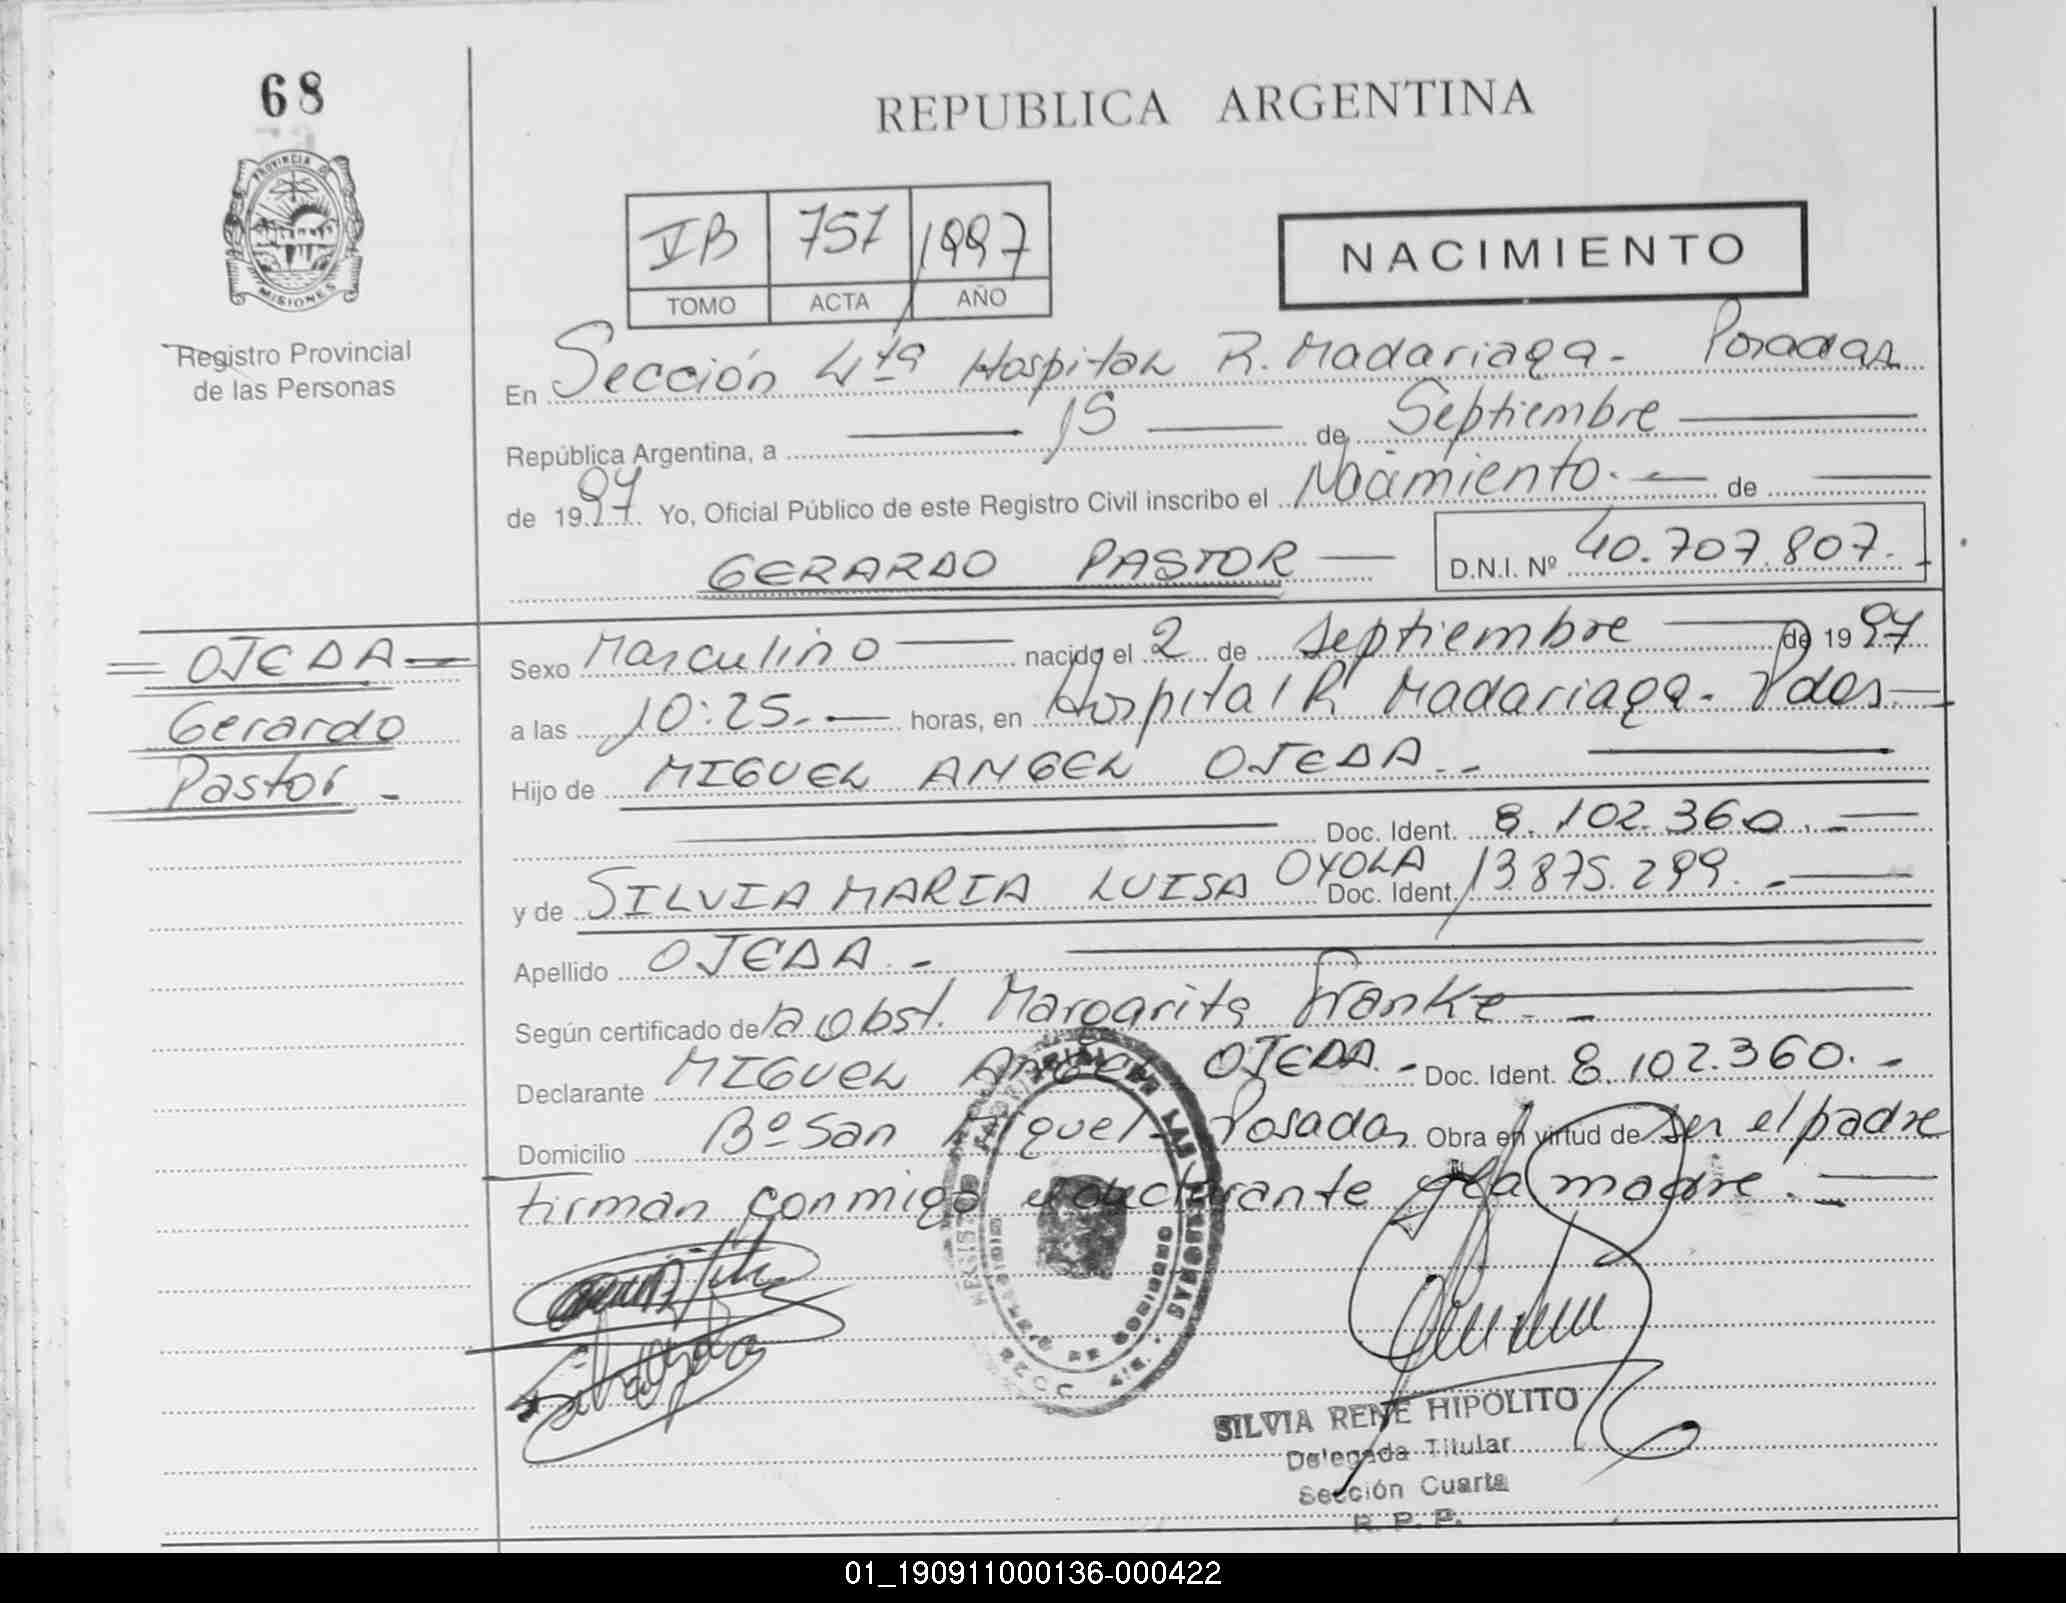 68
REPUBLICA ARGENTINA
PROVINCIA DE
MISIONES
Registro Provincial
de las Personas
IB 757 1997
TOMO ACTA AÑO
NACIMIENTO
En Sección 4ta Hospital R. Madariaga - Posadas
República Argentina, a 15 de Septiembre
de 1997 Yo, Oficial Público de este Registro Civil inscribo el Nacimiento. - de
GERARDO PASTOR D.N.I. Nº 40.707.807.-
OJEDA
Gerardo
Pastor -
Sexo Masculino nacido el 2 de septiembre de 1997
a las 10:25.- horas, en Hospital R Madariaga - Pdas
Hijo de MIGUEL ANGEL OJEDA.-
Doc. Ident. 8.102.360.-
y de SILVIA MARIA LUISA OYOLA Doc. Ident. 13.875.299.-
Apellido OJEDA.-
Según certificado de la obst. Margarita Franke.-
Declarante MIGUEL ANGEL OJEDA.- Doc. Ident. 8.102.360.-
Domicilio Bº San Miguel - Posadas Obra en virtud de ser el padre
firman conmigo el declarante y la madre.-
SILVIA RENE HIPOLITO
Delegada Titular
Sección Cuarta
R. P. P.
01_190911000136-000422